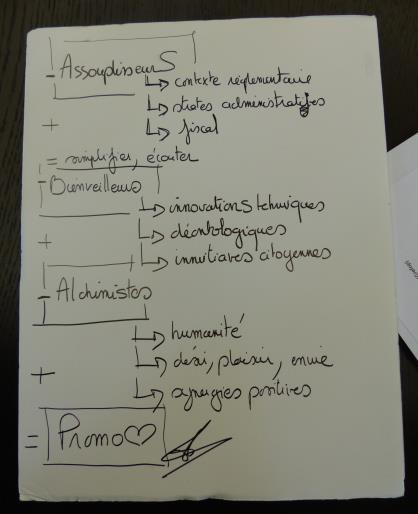 - AssouplisseurS
↳ contexte réglementaire
↳ strates administratifes
↳ fiscal
+
= simplifier, écouter
- Bienveilleurs
↳ innovations techniques
↳ déontologiques
+
↳ innitiatives citoyennes
- Alchimistes
↳ humanité
↳ désir, plaisir, envie
+
↳ synergies positives
= Promo♡